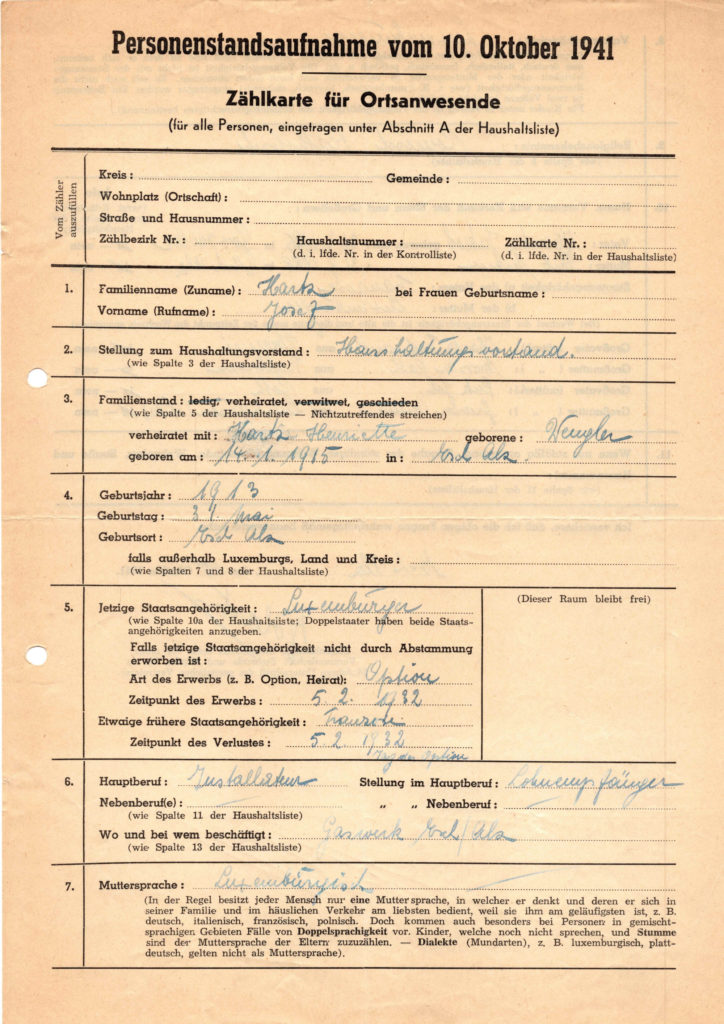 Personenstandsaufnahme vom 10. Oktober 1941
Zählkarte für Ortsanwesende
(für alle Personen, eingetragen unter Abschnitt A der Haushaltsliste)
Vom Zähler auszufüllen
Kreis : Gemeinde :
Wohnplatz (Ortschaft) :
Straße und Hausnummer :
Zählbezirk Nr. : Haushaltsnummer : Zählkarte Nr. :
(d. i. lfde. Nr. in der Kontrolliste) (d. i. lfde. Nr. in der Haushaltsliste)
1. Familienname (Zuname) : Hartz bei Frauen Geburtsname :
Vorname (Rufname) : Josef
2. Stellung zum Haushaltungsvorstand : Haushaltungsvorstand.
(wie Spalte 3 der Haushaltsliste)
3. Familienstand : ledig, verheiratet, verwitwet, geschieden
(wie Spalte 5 der Haushaltsliste — Nichtzutreffendes streichen)
verheiratet mit : Hartz Henriette geborene : Wengler
geboren am : 14. 1. 1915 in : Esch Alz.
4. Geburtsjahr : 1913
Geburtstag : 31 Mai
Geburtsort : Esch Alz
falls außerhalb Luxemburgs, Land und Kreis :
(wie Spalten 7 und 8 der Haushaltsliste)
5. Jetzige Staatsangehörigkeit : Luxemburger
(wie Spalte 10a der Haushaltsliste; Doppelstaater haben beide Staats-
angehörigkeiten anzugeben.
Falls jetzige Staatsangehörigkeit nicht durch Abstammung
erworben ist :
Art des Erwerbs (z. B. Option, Heirat): Option
Zeitpunkt des Erwerbs : 5. 2. 1932
Etwaige frühere Staatsangehörigkeit :
Zeitpunkt des Verlustes : 5. 2. 1932
Tag der Option
(Dieser Raum bleibt frei)
6. Hauptberuf : Installateur Stellung im Hauptberuf : Lohnempfänger
Nebenberuf(e) : „ „ Nebenberuf :
(wie Spalte 11 der Haushaltsliste)
Wo und bei wem beschäftigt : Gaswerk Esch/Alz
(wie Spalte 13 der Haushaltsliste)
7. Muttersprache : Luxemburgisch
(In der Regel besitzt jeder Mensch nur eine Muttersprache, in welcher er denkt und deren er sich in
seiner Familie und im häuslichen Verkehr am liebsten bedient, weil sie ihm am geläufigsten ist, z. B.
deutsch, italienisch, französisch, polnisch. Doch kommen auch besonders bei Personen in gemischt-
sprachigen Gebieten Fälle von Doppelsprachigkeit vor. Kinder, welche noch nicht sprechen, und Stumme
sind der Muttersprache der Eltern zuzuzählen. — Dialekte (Mundarten), z. B. luxemburgisch, platt-
deutsch, gelten nicht als Muttersprache).